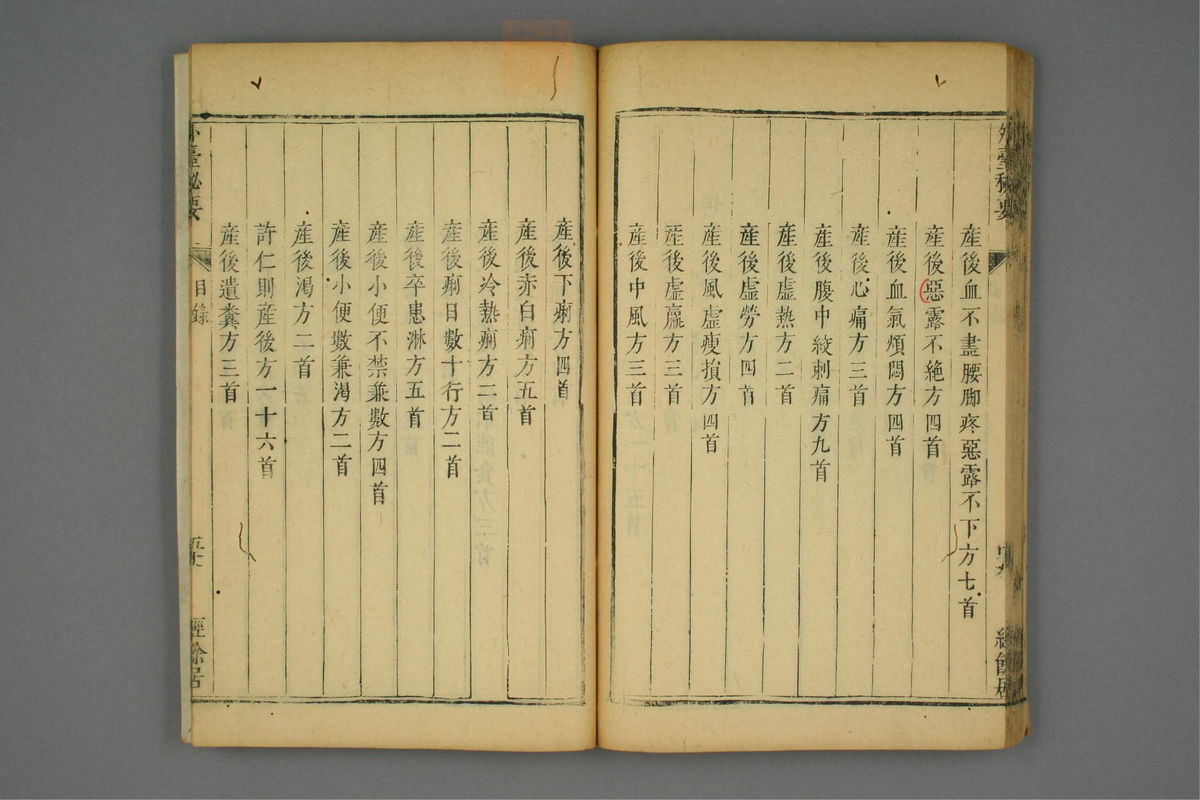 外臺秘要
産後血不盡腰脚疼惡露不下方七首
産後惡露不絶方四首
産後血氣煩悶方四首
産後心痛方三首
産後腹中絞刺痛方九首
産後虚熱方二首
産後虚勞方四首
産後風虚瘦損方四首
産後虚羸方三首
産後中風方三首
産後下痢方四首
産後赤白痢方五首
産後冷熱痢方二首
産後痢日數十行方二首
産後卒患淋方五首
産後小便不禁兼數方四首
産後小便數兼渴方二首
産後渴方二首
許仁則産後方一十六首
産後遺糞方三首
外臺秘要
目錄
經餘居